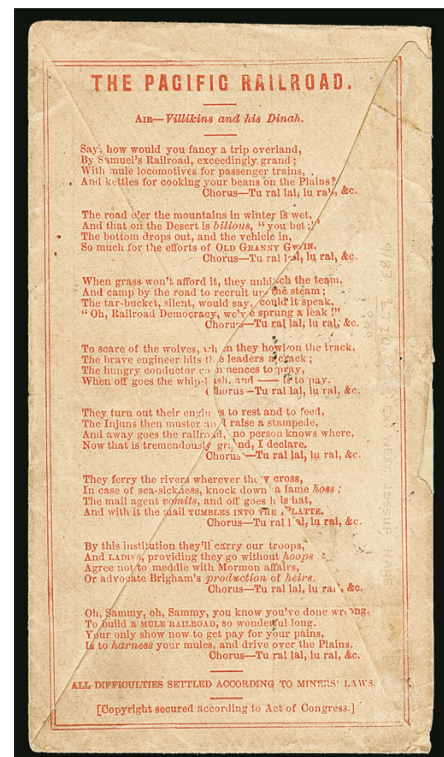 THE PACIFIC RAILROAD.
AIR—Villikins and his Dinah.
Say, how would you fancy a trip overland,
By Samuel's Railroad, exceedingly grand;
With mule locomotives for passenger trains,
And kettles for cooking your beans on the Plains?
Chorus—Tu ral lal, lu ral, &c.
The road o'er the mountains in winter is wet,
And that on the Desert is bilious, "you bet;"
The bottom drops out, and the vehicle in,
So much for the efforts of OLD GRANNY GWIN.
Chorus—Tu ral lal, lu ral, &c.
When grass won't afford it, they unhitch the team,
And camp by the road to recruit up the steam;
The tar-bucket, silent, would say, could it speak,
"Oh, Railroad Democracy, we've sprung a leak!"
Chorus—Tu ral lal, lu ral, &c.
To scare of the wolves, when they howl on the track,
The brave engineer hits the leaders a crack;
The hungry conductor commences to pray,
When off goes the whip-lash, and —— is to pay.
Chorus—Tu ral lal, lu ral, &c.
They turn out their engines to rest and to feed,
The Injuns then muster and raise a stampede,
And away goes the railroad, no person knows where,
Now that is tremendously grand, I declare.
Chorus—Tu ral lal, lu ral, &c.
They ferry the rivers wherever they cross,
In case of sea-sickness, knock down a lame hoss;
The mail agent vomits, and off goes his hat,
And with it the mail TUMBLES INTO THE PLATTE.
Chorus—Tu ral lal, lu ral, &c.
By this institution they'll carry our troops,
And LADIES, providing they go without hoops
Agree not to meddle with Mormon affairs,
Or advocate Brigham's production of heirs.
Chorus—Tu ral lal, lu ral, &c.
Oh, Sammy, oh, Sammy, you know you've done wrong,
To build a MULE RAILROAD, so wonderful long.
Your only show now to get pay for your pains,
Is to harness your mules, and drive over the Plains.
Chorus—Tu ral lal, lu ral, &c.
ALL DIFFICULTIES SETTLED ACCORDING TO MINERS' LAWS.
[Copyright secured according to Act of Congress.]